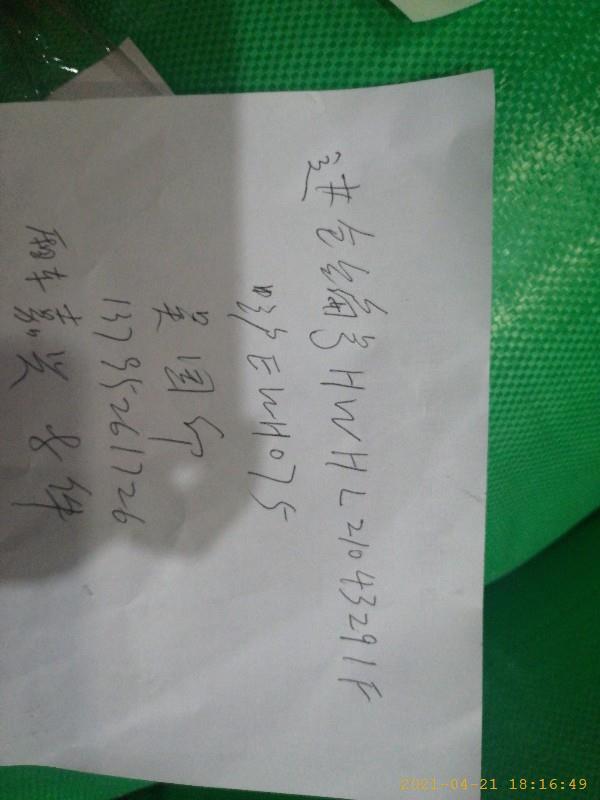 进仓编号HWHL21043291F
唛头EWH075
吴国华
13735261726
8件
2021-04-21 18:16:49